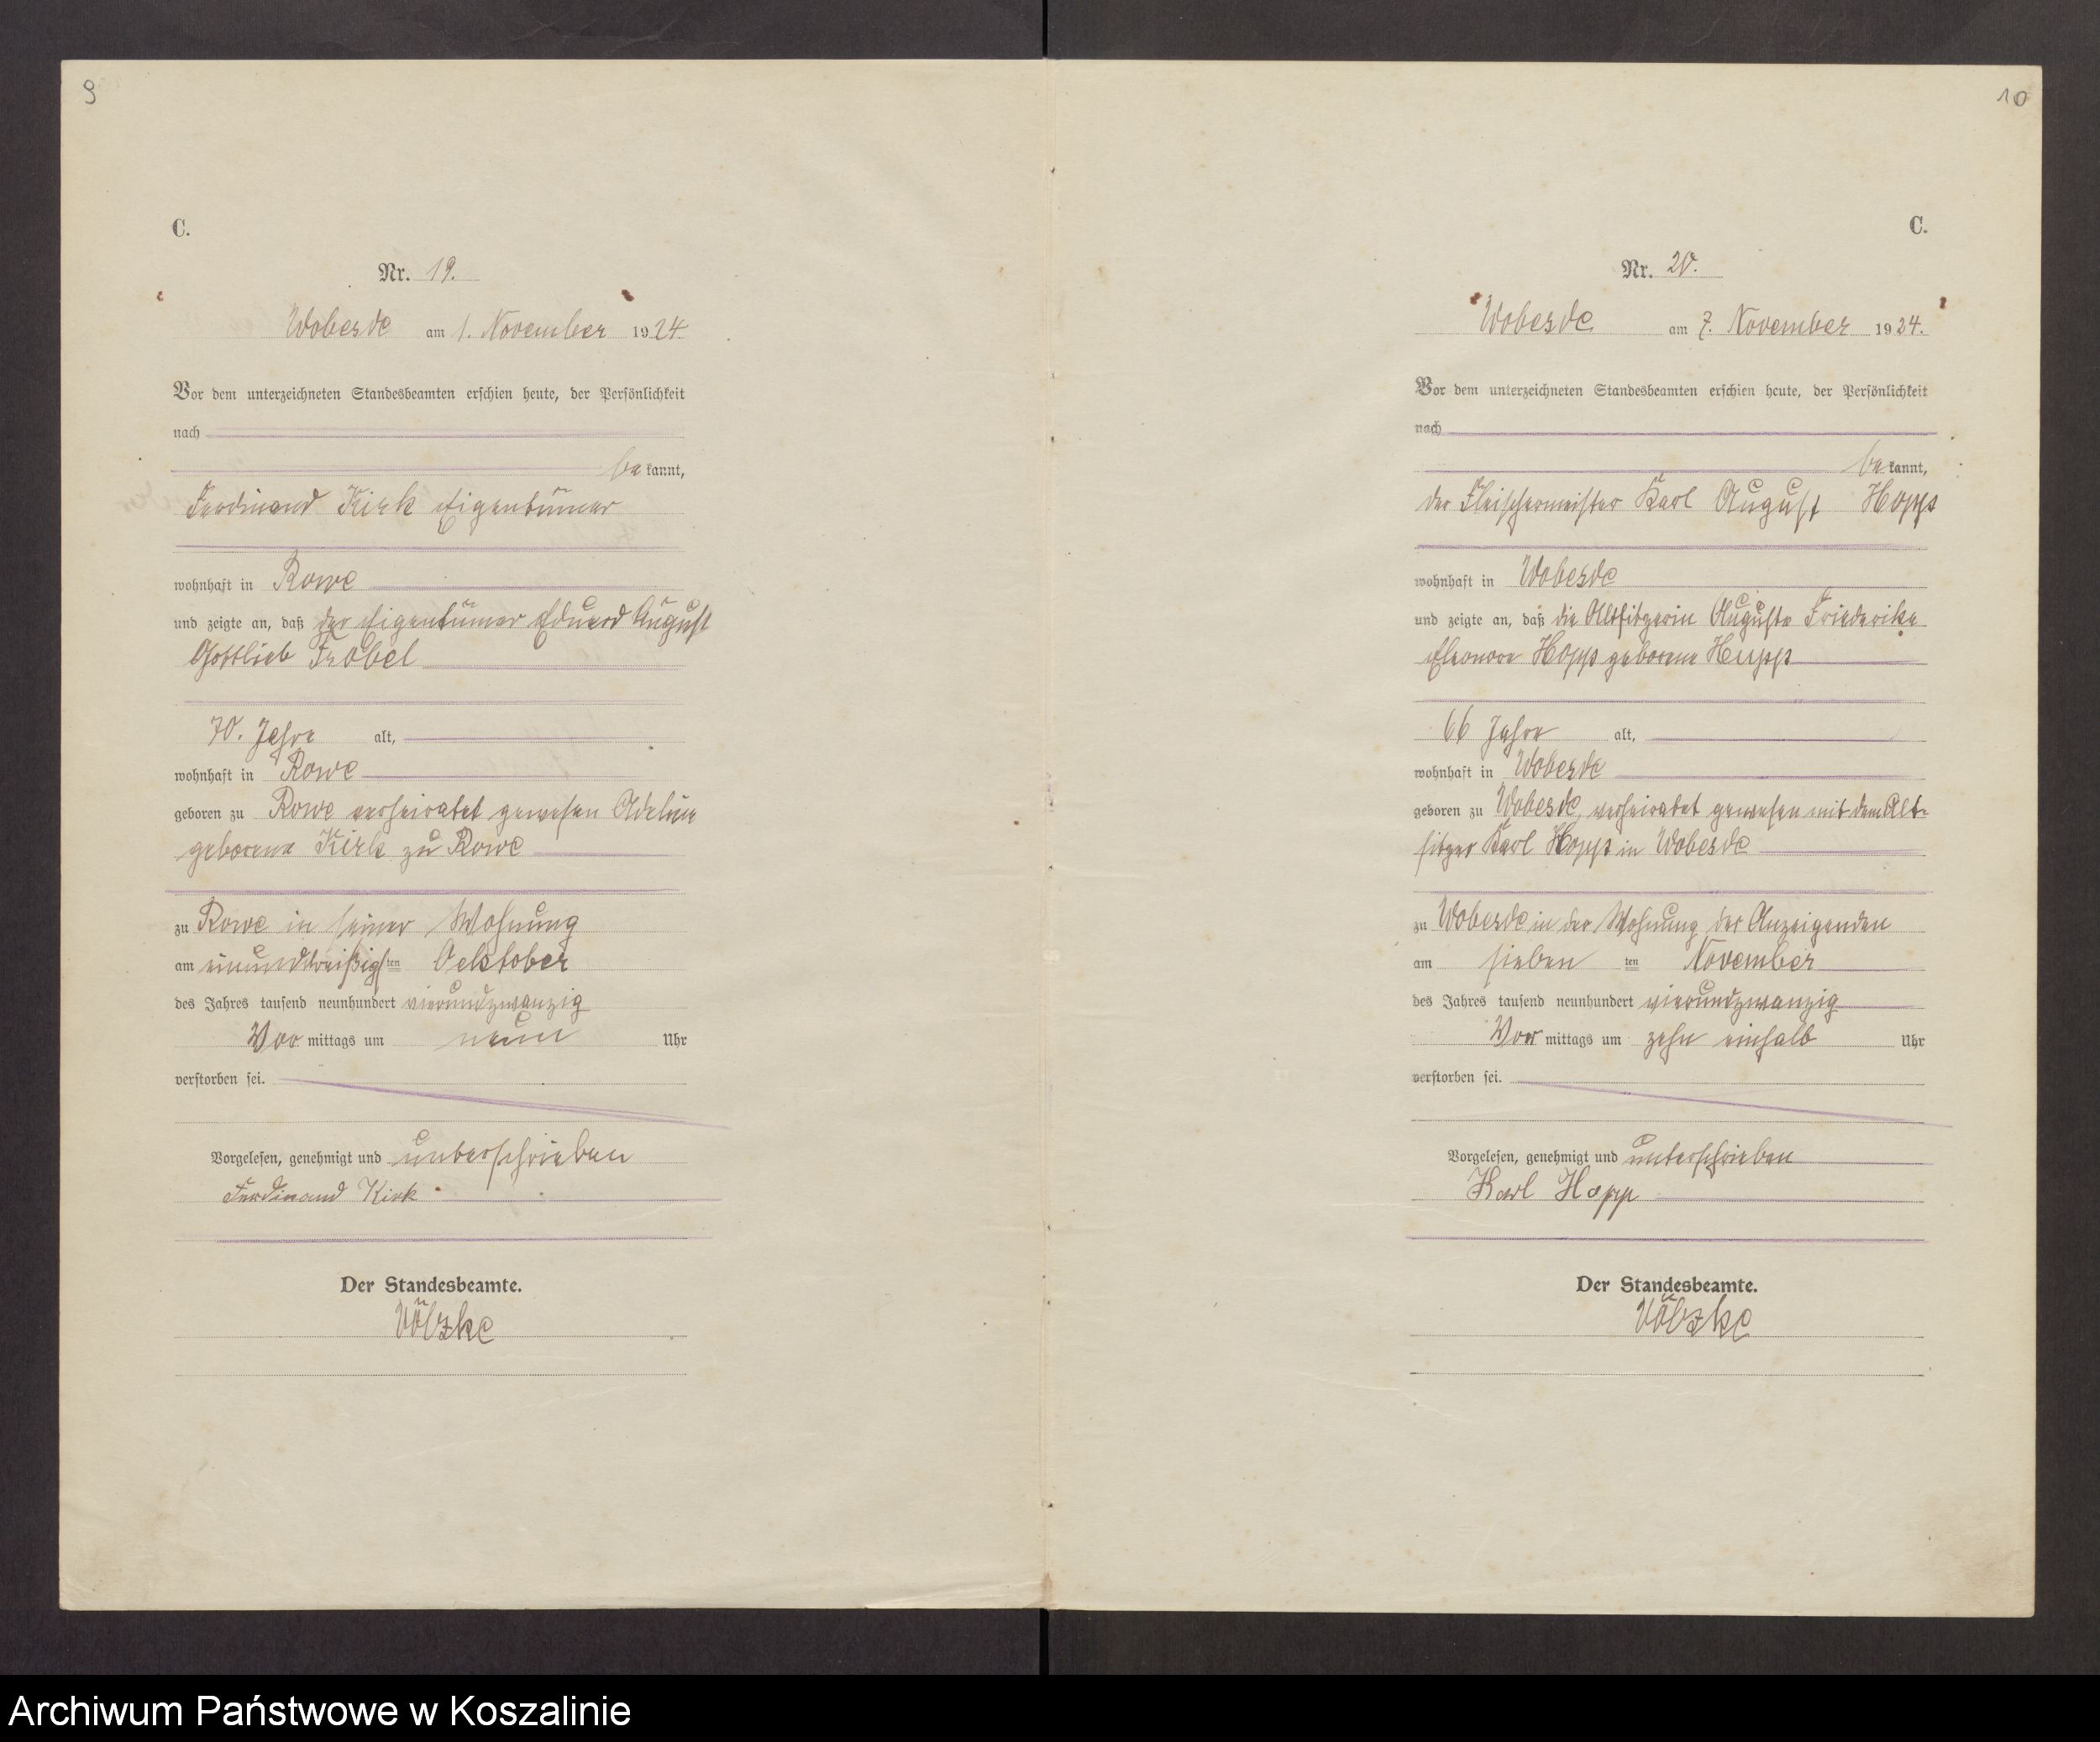 9
C.
Nr. 19.
Wobesde am 1. November 1924.
Vor dem unterzeichneten Standesbeamten erschien heute, der Persönlichkeit
nach
be kannt,
Ferdinand Kirk Eigentümer
wohnhaft in Rowe
und zeigte an, daß der Eigentümer Eduard August
Gottlieb Frobel
70. Jahre alt,
wohnhaft in Rowe
geboren zu Rowe verheiratet gewesen Adeline
geborene Kirk zu Rowe
zu Rowe in seiner Wohnung
am einunddreißigsten Ocktober
des Jahres tausend neunhundert vierundzwanzig
Vor mittags um neun Uhr
verstorben sei.
Vorgelesen, genehmigt und unterschrieben
Ferdinand Kirk
Der Standesbeamte.
Völzke
10
C.
Nr. 20.
Wobesde am 7. November 1924.
Vor dem unterzeichneten Standesbeamten erschien heute, der Persönlichkeit
nach
be kannt,
der Fleischermeister Karl August Hopp
wohnhaft in Wobesde
und zeigte an, daß die Altsitzerin Auguste Friederike
Eleonore Hopp geborene Hupp
66 Jahre alt,
wohnhaft in Wobesde
geboren zu Wobesde, verheiratet gewesen mit dem Alt-
sitzer Karl Hopp in Wobesde
zu Wobesde in der Wohnung des Anzeigenden
am sieben ten November
des Jahres tausend neunhundert vierundzwanzig
Vor mittags um zehn einhalb Uhr
verstorben sei.
Vorgelesen, genehmigt und unterschrieben
Karl Hopp
Der Standesbeamte.
Völzke
Archiwum Państwowe w Koszalinie